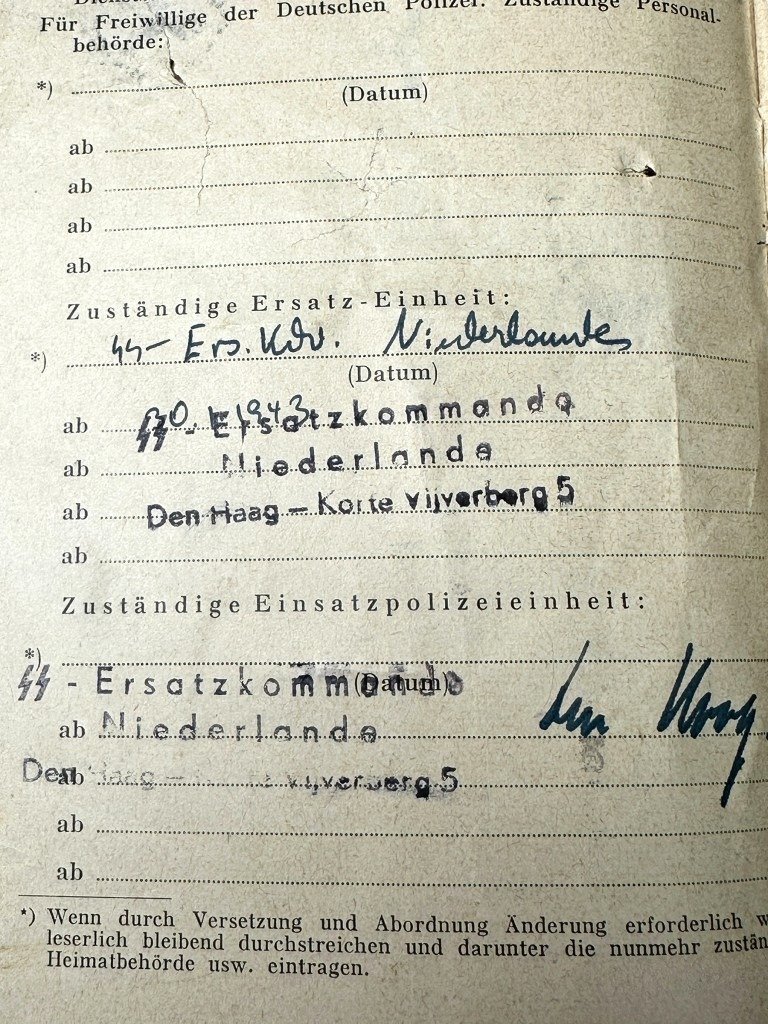 Für Freiwillige der Deutschen Polizei: Zuständige Personal-
behörde:
*)
(Datum)
ab
ab
ab
ab
Zuständige Ersatz-Einheit:
*) SS- Ers. Kdo. Niederlande
(Datum)
ab 1943
SS-Ersatzkommando
ab Niederlande
ab Den Haag – Korte Vijverberg 5
ab
Zuständige Einsatzpolizeieinheit:
*)
SS-Ersatzkommando (Datum)
ab Niederlande Den Haag
ab Den Haag – Korte Vijverberg 5
ab
ab
*) Wenn durch Versetzung und Abordnung Änderung erforderlich
leserlich bleibend durchstreichen und darunter die nunmehr
Heimatbehörde usw. eintragen.